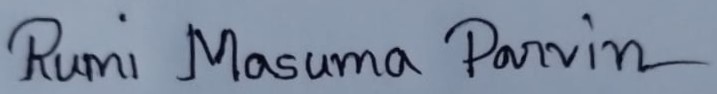 Rumi Masuma Parvin